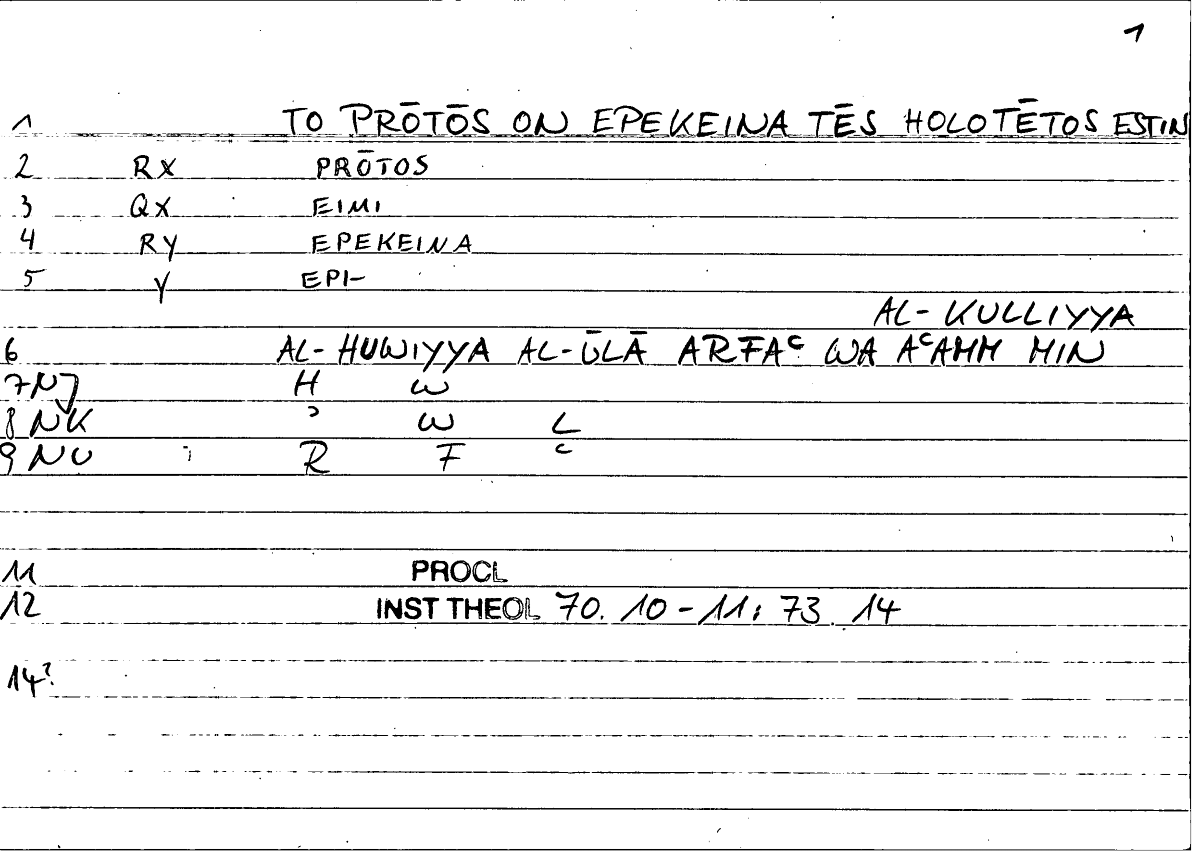 1
1 TO PRŌTŌS ON EPEKEINA TĒS HOLOTĒTOS ESTIN
2 RX PRŌTOS
3 QX EIMI
4 RY EPEKEINA
5 Y EPI-
AL-KULLIYYA
6 AL-HUWIYYA AL-ŪLĀ ARFAᶜ WA AᶜAMM MIN
7 NJ H W
8 NK ʾ W L
9 NU R F ᶜ
11 PROCL
12 INST THEOL 70. 10-11; 73. 14
14?